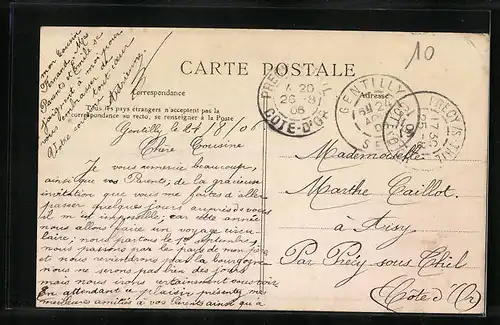 10
CARTE POSTALE
Correspondance
Adresse
Tous les pays étrangers n'acceptent pas la
correspondance au recto, se renseigner à la Poste
Gentilly le 24/8/06
Chère Cousine
Je vous remercie beaucoup,
ainsi que vos Parents, de la gracieuse
invitation que vous me faites d'aller
passer quelques jours auprès de vous
il m'est impossible; car cette année
nous allons faire un voyage circu
laire; nous partons le 1er Septembre,
nous passons par le pays de mon père
et nous reviendrons par la bourgogne
nous ne serons pas bien des jours
mais nous irons certainement vous voir
En attendant ce plaisir présentez mes
meilleures amitiés à vos Parents ainsi qu'à
mon Cousin
Fernand. Mes
Parents et Emile se
joignent à moi pour
vous embrasser de
tout cœur
Votre cousine
Adrienne
Mademoiselle
Marthe Caillot.
à Aisy
Par Précy-sous-Thil
Côte d'Or
4 20
26 8
06
COTE-D'OR
GENTILLY
SEINE
PRÉCY-S-THIL
COTE-D'OR